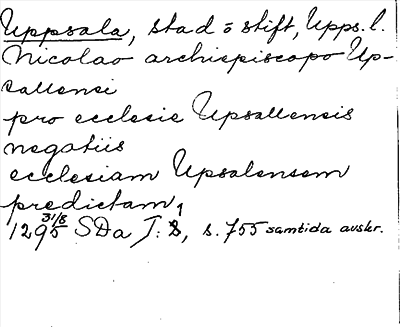 Uppsala, stad o stift, Upps. l.
Nicolao archiepiscopo Up-
sallensi
pro ecclesie Upsallensis
negotiis
ecclesiam Upsalensem
predictam,
1295 31/8 SDa I: 1, s. 755 samtida avskr.